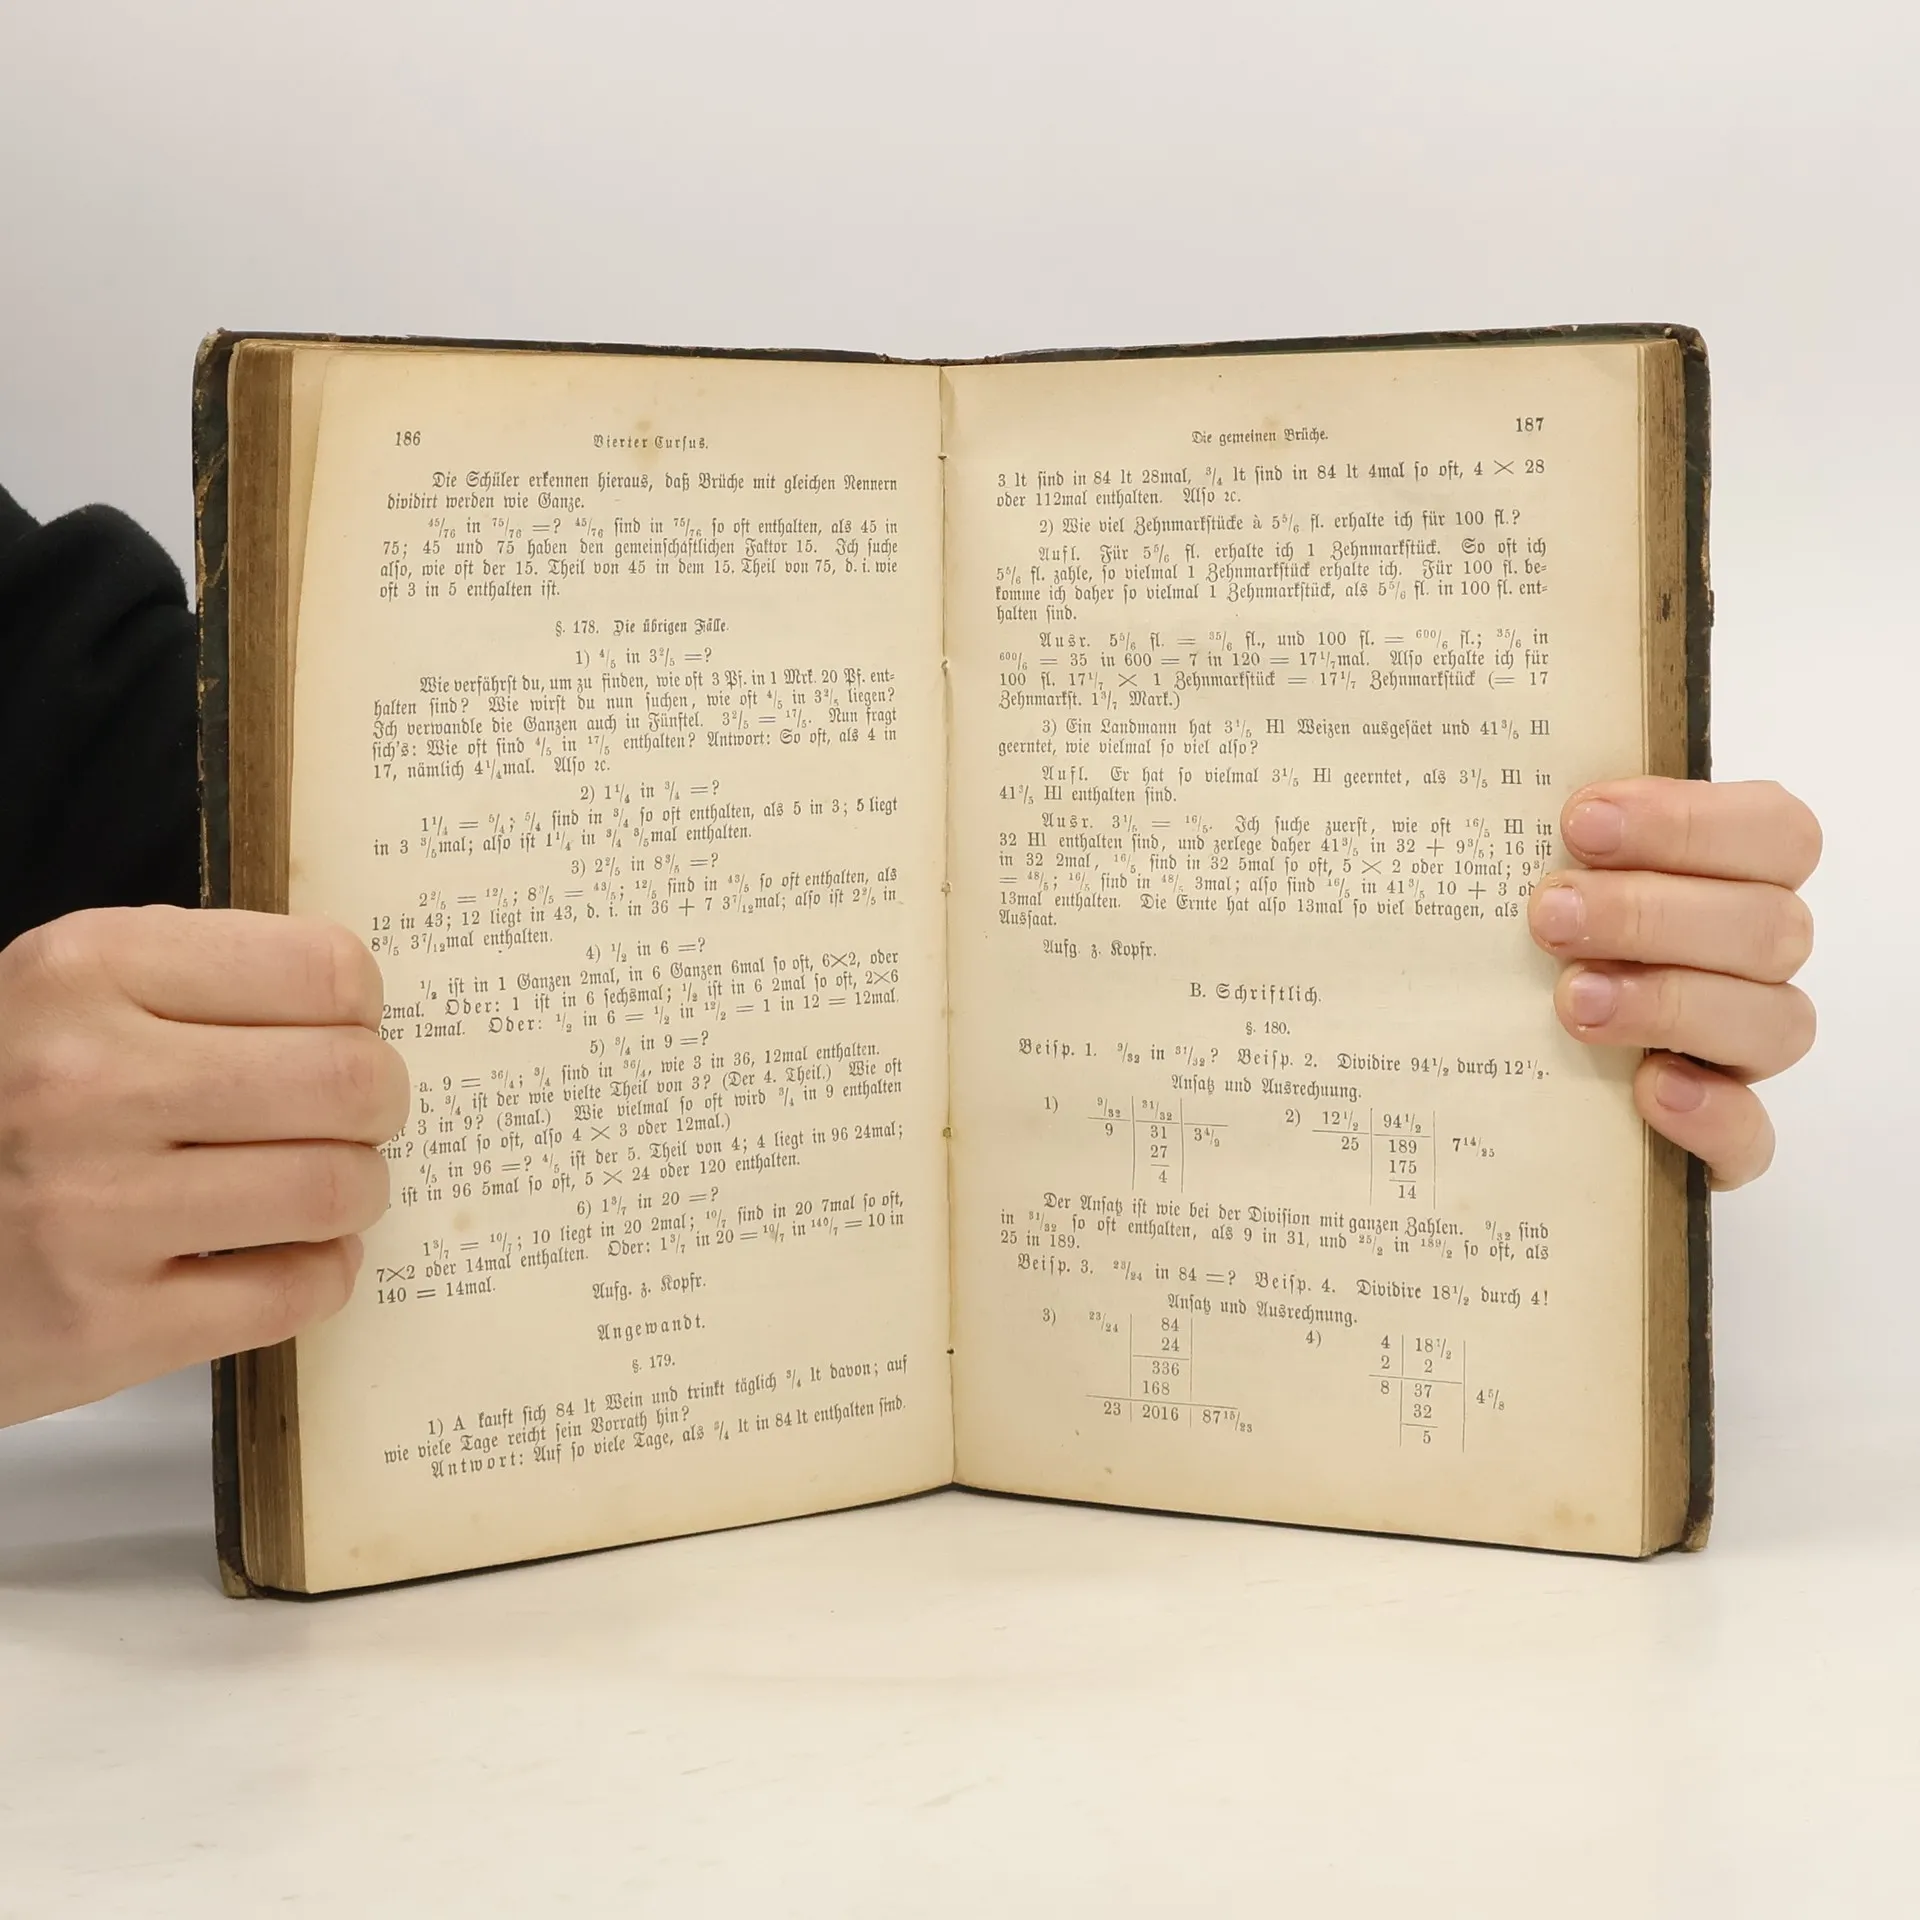 186
Vierter Cursus.
Die Schüler erkennen hieraus, daß Brüche mit gleichen Nennern
dividirt werden wie Ganze.
45/76 in 75/76 =? 45/76 sind in 75/76 so oft enthalten, als 45 in
75; 45 und 75 haben den gemeinschaftlichen Faktor 15. Ich suche
also, wie oft der 15. Theil von 45 in dem 15. Theil von 75, d. i. wie
oft 3 in 5 enthalten ist.
§. 178. Die übrigen Fälle.
1) 4/5 in 3 2/5 =?
Wie verfährst du, um zu finden, wie oft 3 Pf. in 1 Mrk. 20 Pf. ent-
halten sind? Wie wirst du nun suchen, wie oft 4/5 in 3 2/5 liegen?
Ich verwandle die Ganzen auch in Fünftel. 3 2/5 = 17/5. Nun fragt
sich's: Wie oft sind 4/5 in 17/5 enthalten? Antwort: So oft, als 4 in
17, nämlich 4 1/4mal. Also ꝛc.
2) 1 1/4 in 3/4 =?
1 1/4 = 5/4; 5/4 sind in 3/4 so oft enthalten, als 5 in 3; 5 liegt
in 3 3/5mal; also ist 1 1/4 in 3/4 3/5mal enthalten.
3) 2 2/5 in 8 3/5 =?
2 2/5 = 12/5; 8 3/5 = 43/5; 12/5 sind in 43/5 so oft enthalten, als
12 in 43; 12 liegt in 43, d. i. in 36 + 7 3 7/12mal; also ist 2 2/5 in
8 3/5 3 7/12mal enthalten.
4) 1/2 in 6 =?
1/2 ist in 1 Ganzen 2mal, in 6 Ganzen 6mal so oft, 6×2, oder
2mal. Oder: 1 ist in 6 sechsmal; 1/2 ist in 6 2mal so oft, 2×6
der 12mal. Oder: 1/2 in 6 = 1/2 in 12/2 = 1 in 12 = 12mal.
5) 3/4 in 9 =?
a. 9 = 36/4; 3/4 sind in 36/4, wie 3 in 36, 12mal enthalten.
b. 3/4 ist der wie vielte Theil von 3? (Der 4. Theil.) Wie oft
3 in 9? (3mal.) Wie vielmal so oft wird 3/4 in 9 enthalten
ein? (4mal so oft, also 4 × 3 oder 12mal.)
4/5 in 96 =? 4/5 ist der 5. Theil von 4; 4 liegt in 96 24mal;
ist in 96 5mal so oft, 5 × 24 oder 120 enthalten.
6) 1 3/7 in 20 =?
1 3/7 = 10/7; 10 liegt in 20 2mal; 10/7 sind in 20 7mal so oft,
7×2 oder 14mal enthalten. Oder: 1 3/7 in 20 = 10/7 in 140/7 = 10 in
140 = 14mal.
Aufg. z. Kopfr.
Angewandt.
§. 179.
1) A kauft sich 84 lt Wein und trinkt täglich 3/4 lt davon; auf
wie viele Tage reicht sein Vorrath hin?
Antwort: Auf so viele Tage, als 3/4 lt in 84 lt enthalten sind.
Die gemeinen Brüche.
187
3 lt sind in 84 lt 28mal, 3/4 lt sind in 84 lt 4mal so oft, 4 × 28
oder 112mal enthalten. Also ꝛc.
2) Wie viel Zehnmarkstücke à 5 5/6 fl. erhalte ich für 100 fl.?
Aufl. Für 5 5/6 fl. erhalte ich 1 Zehnmarkstück. So oft ich
5 5/6 fl. zahle, so vielmal 1 Zehnmarkstück erhalte ich. Für 100 fl. be-
komme ich daher so vielmal 1 Zehnmarkstück, als 5 5/6 fl. in 100 fl. ent-
halten sind.
Ausr. 5 5/6 fl. = 35/6 fl., und 100 fl. = 600/6 fl.; 35/6 in
600/6 = 35 in 600 = 7 in 120 = 17 1/7mal. Also erhalte ich für
100 fl. 17 1/7 × 1 Zehnmarkstück = 17 1/7 Zehnmarkstück (= 17
Zehnmarkst. 1 3/7 Mark.)
3) Ein Landmann hat 3 1/5 Hl Weizen ausgesäet und 41 3/5 Hl
geerntet, wie vielmal so viel also?
Aufl. Er hat so vielmal 3 1/5 Hl geerntet, als 3 1/5 Hl in
41 3/5 Hl enthalten sind.
Ausr. 3 1/5 = 16/5. Ich suche zuerst, wie oft 16/5 Hl in
32 Hl enthalten sind, und zerlege daher 41 3/5 in 32 + 9 3/5; 16 ist
in 32 2mal, 16/5 sind in 32 5mal so oft, 5 × 2 oder 10mal; 9 3/
= 48/5; 16/5 sind in 48/5 3mal; also sind 16/5 in 41 3/5 10 + 3
13mal enthalten. Die Ernte hat also 13mal so viel betragen, als
Aussaat.
Aufg. z. Kopfr.
B. Schriftlich.
§. 180.
Beisp. 1. 9/32 in 31/32? Beisp. 2. Dividire 94 1/2 durch 12 1/2.
Ansatz und Ausrechnung.
1) 9/32 | 31/32 |
9 | 31 | 3 4/9
27
4
2) 12 1/2 | 94 1/2
25 | 189 | 7 14/25
175
14
Der Ansatz ist wie bei der Division mit ganzen Zahlen. 9/32 sind
in 31/32 so oft enthalten, als 9 in 31, und 25/2 in 189/2 so oft, als
25 in 189.
Beisp. 3. 23/24 in 84 =? Beisp. 4. Dividire 18 1/2 durch 4!
Ansatz und Ausrechnung.
3) 23/24 | 84
24
336
168
23 | 2016 | 87 15/23
4) 4 | 18 1/2
2 | 2
8 | 37 | 4 5/8
32
5